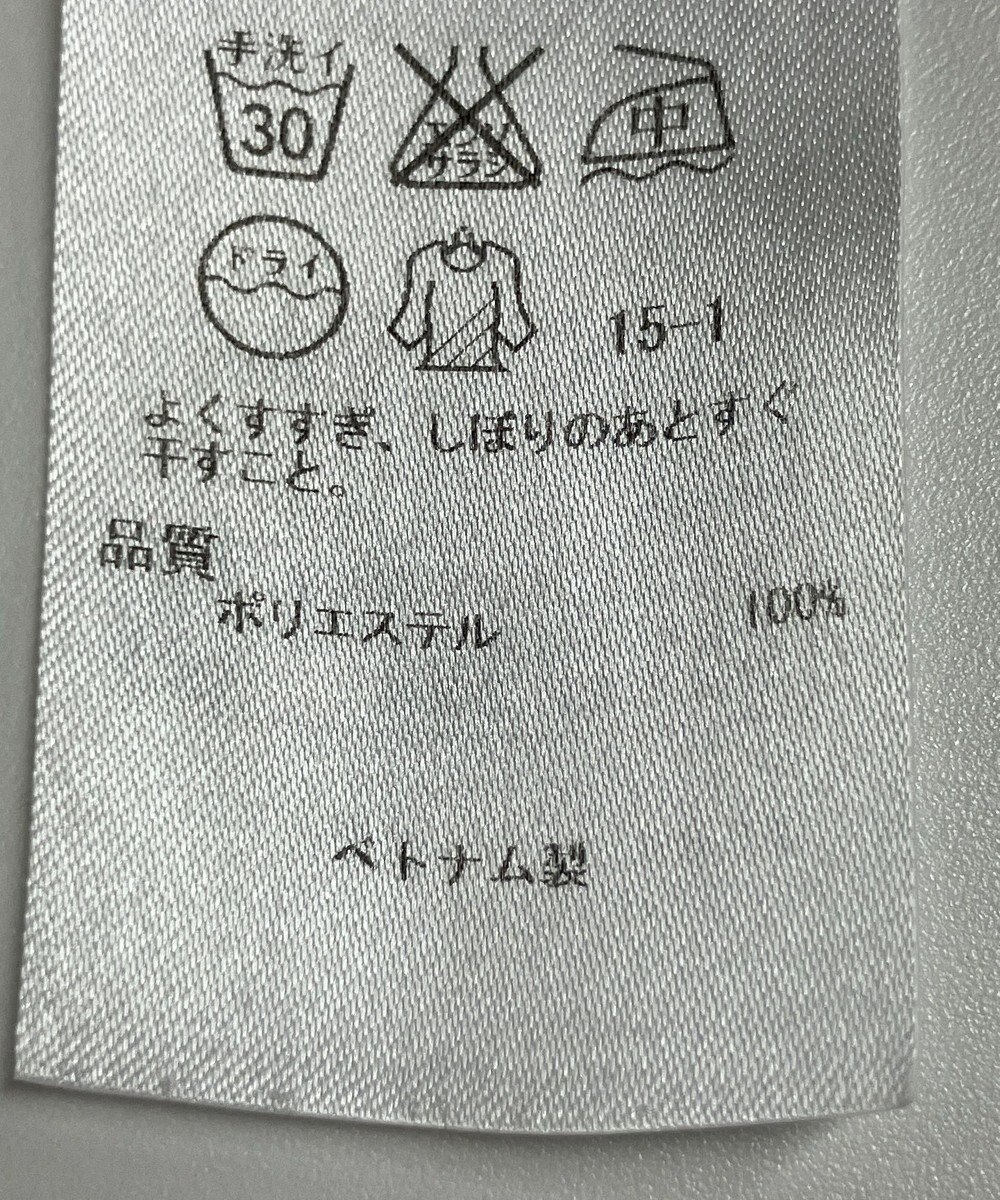 手洗イ
30
エンソ
サラシ
中
ドライ
15-1
よくすすぎ、しぼりのあとすぐ
干すこと。
品質
ポリエステル 100%
ベトナム製